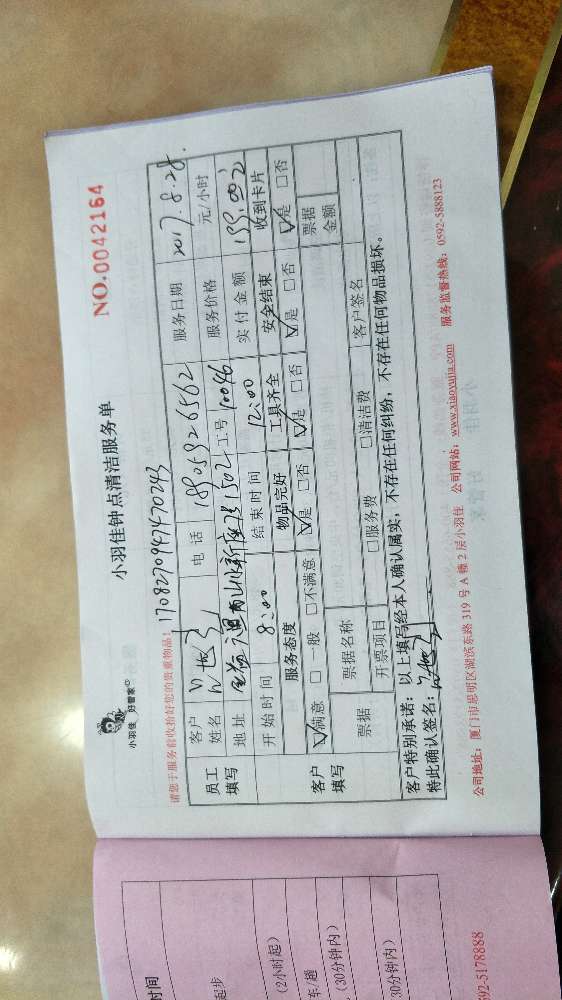 小羽佳 好管家
小羽佳钟点清洁服务单
NO.0042164
请您于服务前收拾好您的贵重物品! 170827094747470243
员工填写 客户姓名 电话 18905926462 服务日期 2017.8.28.
地址 1502 工号 10046 服务价格 元/小时
开始时间 8:00 结束时间 12:00 实付金额 199.00
客户填写 服务态度 物品完好 工具齐全 安全结束 收到卡片
☑满意 □一般 □不满意 ☑是 □否 ☑是 □否 ☑是 □否 ☑是 □否
票据 票据名称 客户签名 票据金额
开票项目 □服务费 □清洁费
客户特别承诺:以上填写经本人确认属实,不存在任何纠纷,不存在任何物品损坏。
特此确认签名:
公司地址:厦门市思明区湖滨东路 319 号 A 幢 2 层小羽佳 公司网站:www.xiaoyujia.com 服务监督热线:0592-5888123
时间
起步
(2小时起)
车/趟
(30分钟内)
30分钟内)
92-5178888